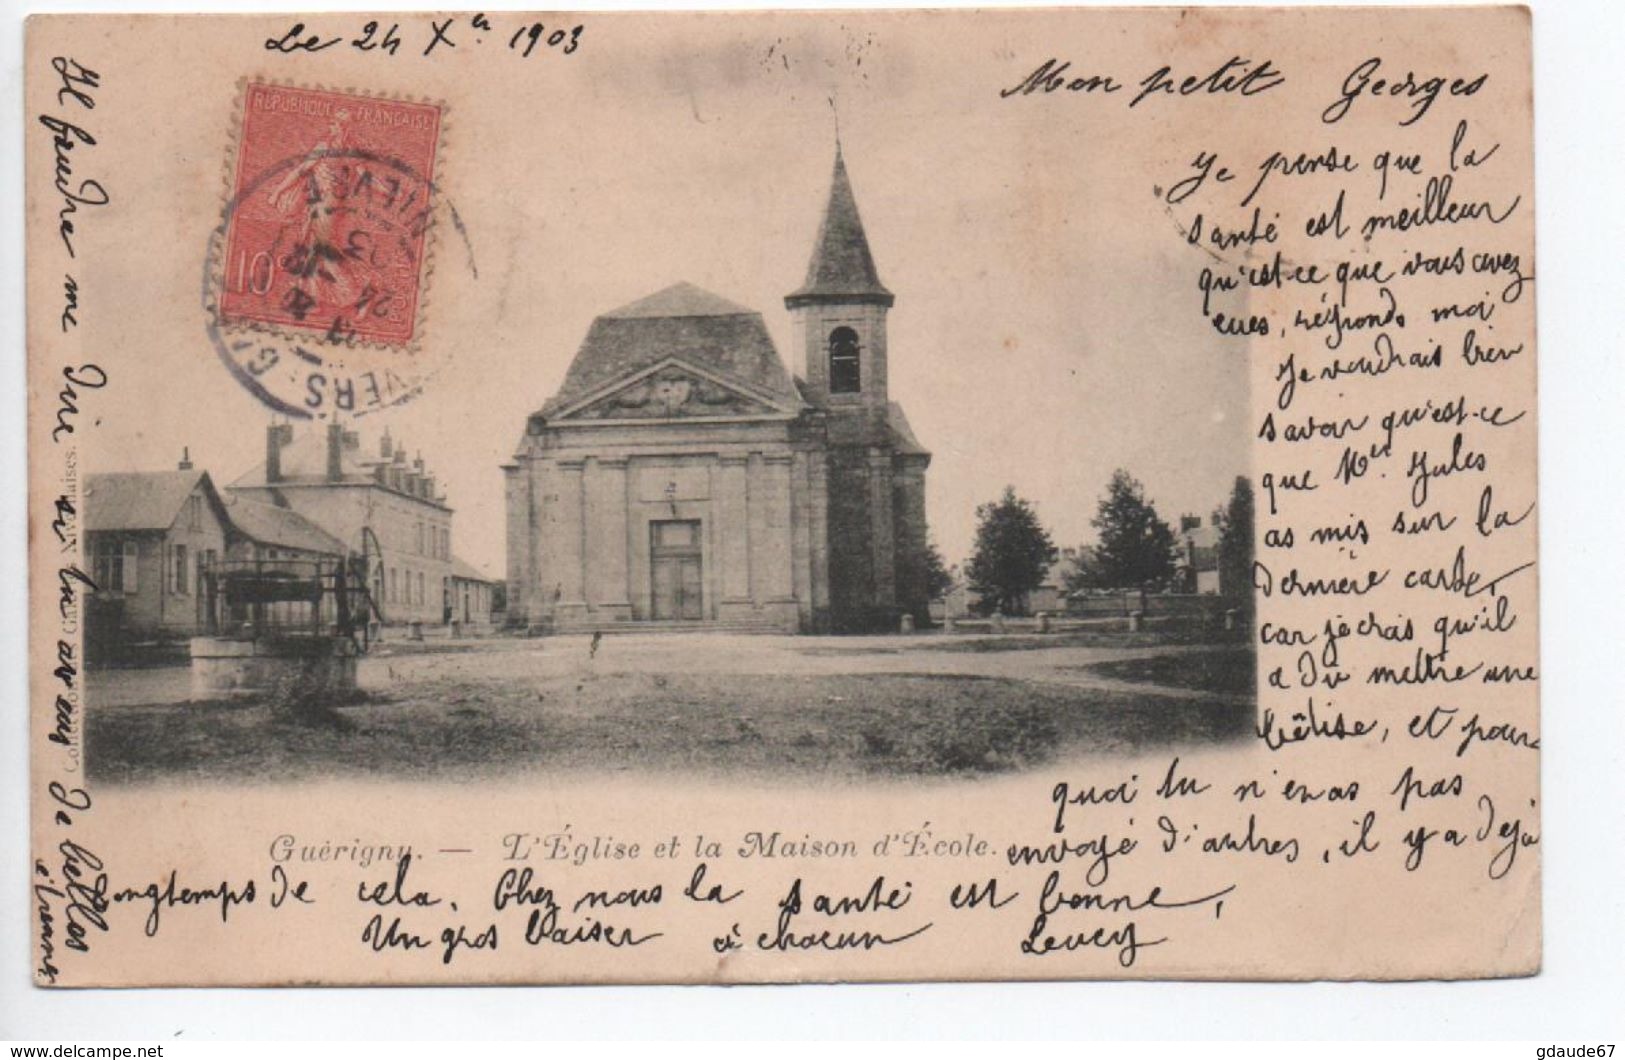 Le 24 Xer 1903
REPUBLIQUE FRANÇAISE
10
NIEVRE
24
Mon petit Georges
Je pense que la
santé est meilleur
qu'est-ce que vous avez
eues, réponds moi
Je voudrais bien
savoir qu'est-ce
que Mer Jules
as mis sur la
dernière carte,
car je crois qu'il
a du mettre une
bêtise, et pour
quoi tu n'en as pas
envoyé d'autres, il y a déjà
longtemps de cela. Chez nous la santé est bonne,
Un gros baiser à chacun Levey
Il faudra me dire si tu as eus de belles
étrennes
Guérigny. — L'Église et la Maison d'École.
gdaude67
www.delcampe.net